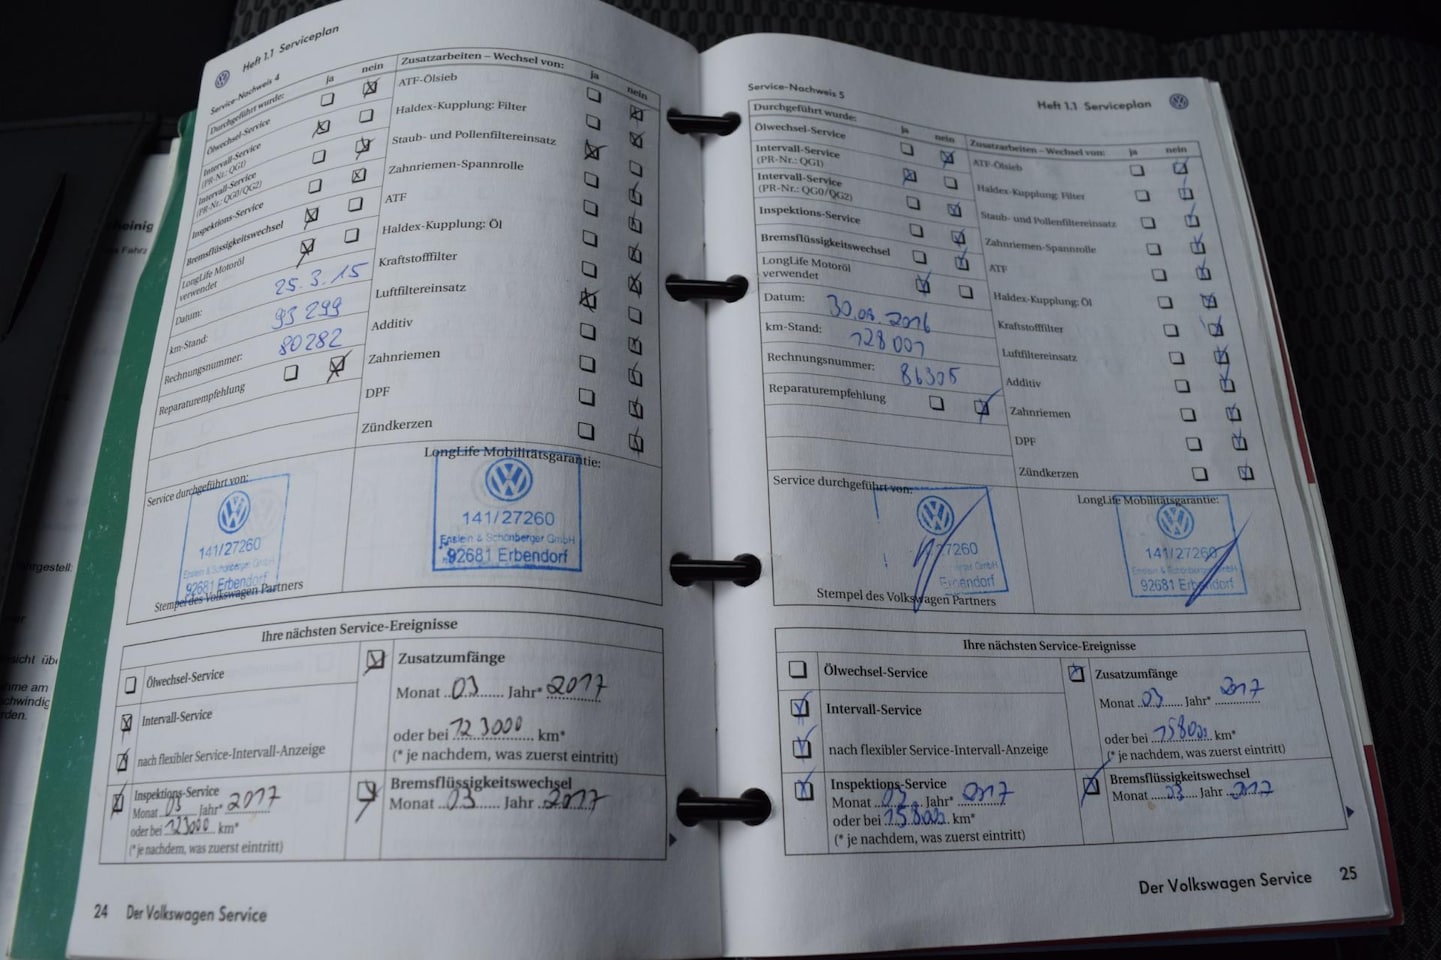 Heft 1.1 Serviceplan
Service-Nachweis 4
Durchgeführt wurde: ja nein
Ölwechsel-Service
Intervall-Service
(PR-Nr.: QG1)
Intervall-Service
(PR-Nr.: QG0/QG2)
Inspektions-Service
Bremsflüssigkeitswechsel
LongLife Motoröl
verwendet
Datum: 25.3.15
km-Stand: 93 299
Rechnungsnummer: 80282
Reparaturempfehlung
Zusatzarbeiten – Wechsel von: ja nein
ATF-Ölsieb
Haldex-Kupplung: Filter
Staub- und Pollenfiltereinsatz
Zahnriemen-Spannrolle
ATF
Haldex-Kupplung: Öl
Kraftstofffilter
Luftfiltereinsatz
Additiv
Zahnriemen
DPF
Zündkerzen
Service durchgeführt von:
141/27260
Enslein & Schönberger GmbH
92681 Erbendorf
Stempel des Volkswagen Partners
LongLife Mobilitätsgarantie:
141/27260
Enslein & Schönberger GmbH
92681 Erbendorf
Ihre nächsten Service-Ereignisse
Ölwechsel-Service
Intervall-Service
nach flexibler Service-Intervall-Anzeige
Inspektions-Service
Monat 03 Jahr* 2017
oder bei 123000 km*
(* je nachdem, was zuerst eintritt)
Zusatzumfänge
Monat 03 Jahr* 2017
oder bei 123000 km*
(* je nachdem, was zuerst eintritt)
Bremsflüssigkeitswechsel
Monat 03 Jahr 2017
24 Der Volkswagen Service
Service-Nachweis 5
Heft 1.1 Serviceplan
Durchgeführt wurde: ja nein
Ölwechsel-Service
Intervall-Service
(PR-Nr.: QG1)
Intervall-Service
(PR-Nr.: QG0/QG2)
Inspektions-Service
Bremsflüssigkeitswechsel
LongLife Motoröl
verwendet
Datum: 30.03.2016
km-Stand: 128 001
Rechnungsnummer: 86305
Reparaturempfehlung
Zusatzarbeiten – Wechsel von: ja nein
ATF-Ölsieb
Haldex-Kupplung: Filter
Staub- und Pollenfiltereinsatz
Zahnriemen-Spannrolle
ATF
Haldex-Kupplung: Öl
Kraftstofffilter
Luftfiltereinsatz
Additiv
Zahnriemen
DPF
Zündkerzen
Service durchgeführt von:
27260
Erbendorf
Stempel des Volkswagen Partners
LongLife Mobilitätsgarantie:
141/27260
Enslein & Schönberger GmbH
92681 Erbendorf
Ihre nächsten Service-Ereignisse
Ölwechsel-Service
Intervall-Service
nach flexibler Service-Intervall-Anzeige
Inspektions-Service
Monat 03 Jahr* 2017
oder bei 158000 km*
(* je nachdem, was zuerst eintritt)
Zusatzumfänge
Monat 03 Jahr* 2017
oder bei 158000 km*
(* je nachdem, was zuerst eintritt)
Bremsflüssigkeitswechsel
Monat 03 Jahr 2017
Der Volkswagen Service 25